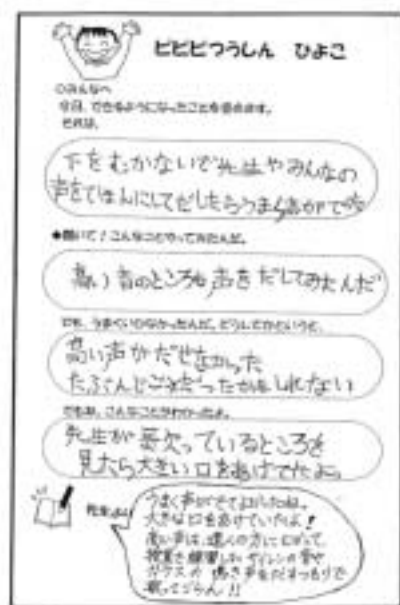 ピピピつうしん ひよこ
○みんなへ
今日、できるようになったことを
それは、
下をむかないで先生やみんなの
声をてほんにしてだしたらうまく声がでた
◆聞いて！こんなことやってみたんだ。
高い音のところも声をだしてみたんだ
でも、うまくいかなかったんだ。どうしてかというと、
高い声がだせなかった
たぶん だったかもしれない
でもね、こんなことがわかったよ。
先生が歌っているところを
見たら大きい口をあけてたよ。
先生より
うまく声がでてよかったね。
大きな口をあけていたよ！
高い声は、
練習した サイレンの音や
カラスの鳴き声をだすつもりで
歌ってごらん!!